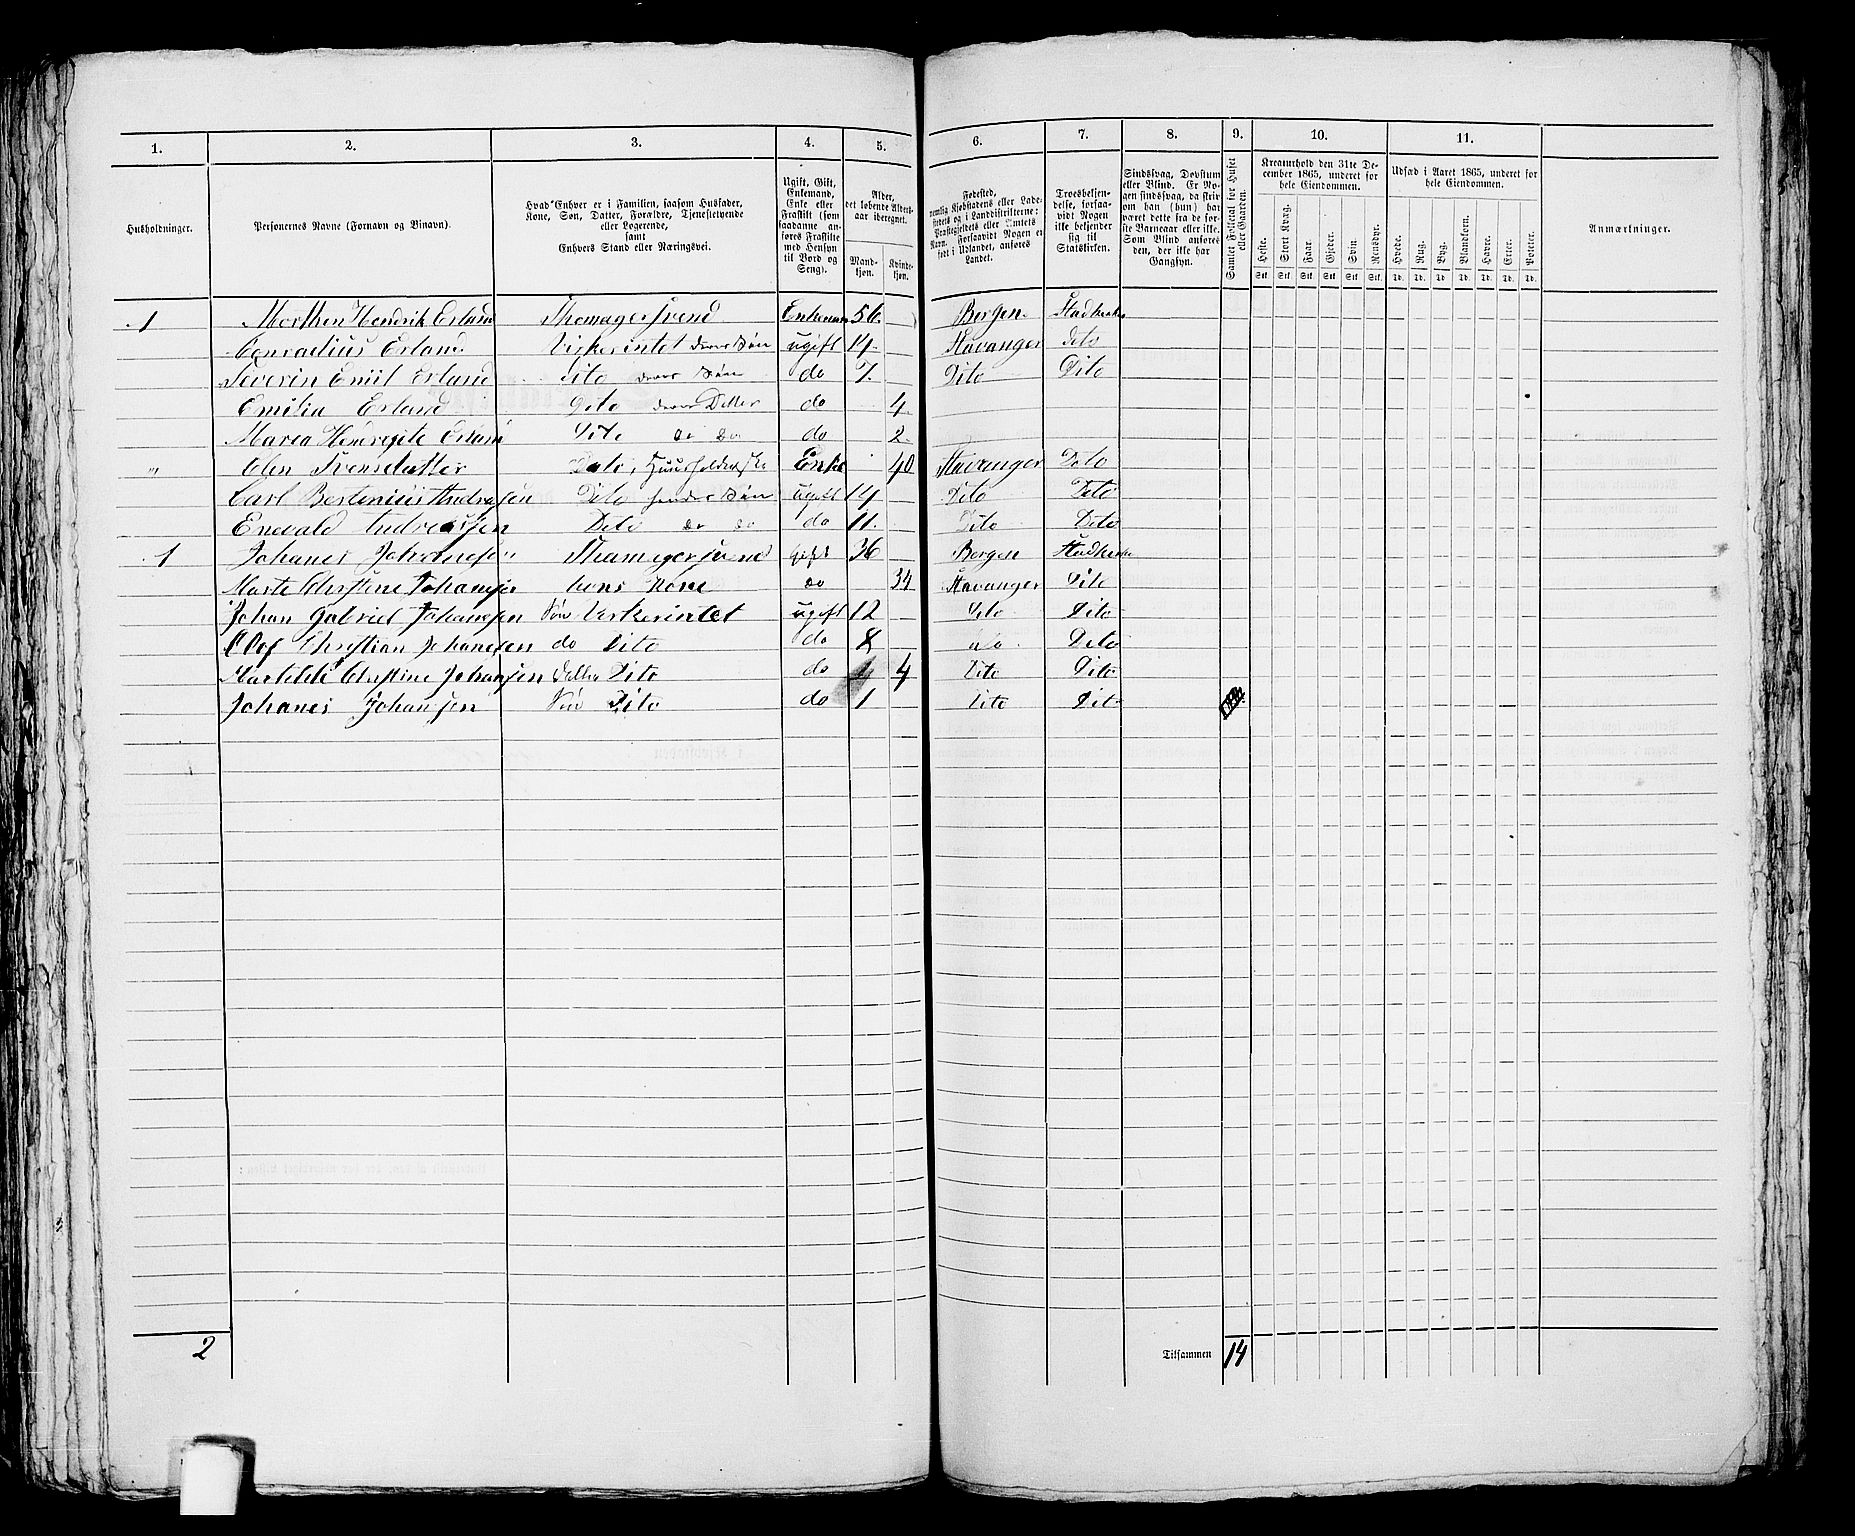 1. 2. 3. 4. 5. 6. 7. 8. 9. 10. 11.
Husholdninger.
Personernes Navne (Fornavn og Binavn).
Hvad Enhver er i Familien, saasom Husfader,
Kone, Søn, Datter, Forældre, Tjenestetyende
eller Logerende,
samt
Enhvers Stand eller Næringsvei.
Ugift, Gift,
Enkemand,
Enke eller
Fraskilt (som
saadanne an-
føres Fraskilte
med Hensyn
til Bord og
Seng).
Alder,
det løbende Alders-
aar iberegnet.
Mand-
kjøn.
Kvinde-
kjøn.
Fødested,
nemlig Kjøbstadens eller Lade-
stedets og i Landdistrikterne:
Præstegjeldets eller Amtets
Navn. Forsaavidt Nogen er
født i Udlandet, anføres
Landet.
Troesbekjen-
delse, forsaa-
vidt Nogen
ikke bekjender
sig til
Statskirken.
Sindssvag, Døvstum
eller Blind. Er No-
gen sindssvag, da skriv
om han (hun) har
været dette fra de før-
ste Barneaar eller ikke.
Som Blind anføres
den, der ikke har
Gangsyn.
Samlet Folketal for Huset
eller Gaarden.
Kreaturhold den 31te De-
cember 1865, underet for
hele Eiendommen.
Heste. Stort Kvæg. Faar. Gjeder. Svin. Rensdyr.
Stk. Stk. Stk. Stk. Stk. Stk.
Udsæd i Aaret 1865, underet for
hele Eiendommen.
Hvede. Rug. Byg. Blandkorn. Havre. Erter. Poteter.
Td. Td. Td. Td. Td. Td. Td.
Anmærkninger.
1 Morthen Hendrik Erland Enkemand 56 Bergen
Conradius Erland Virkerintet ugift 14 Stavanger Dito
Severin Emil Erland Dito do 7 Dito Dito
Emilia Erland Dito do 4
Maren Erland Dito do do do 2
" Elen Svensdatter Dito, Enke 40 Stavanger Dito
Carl Bertenius Andreasen Dito hendes Søn ugift 14 Dito Dito
Enevald Andreassen Dito do do do 11 Dito Dito
1 Johanes Johannesen gift 36 Bergen
Marte Christine Johanesen hans Kone do 34 Stavanger Dito
Johan Gabriel Johanesen Søn Virkerintet ugift 12 Dito Dito
Olof Christian Johanesen do Dito do 8 do Dito
Christine Johansen Dito do 4 Dito Dito
Johanes Johansen Søn Dito do 1 Dito Dito
2 Tilsammen 14